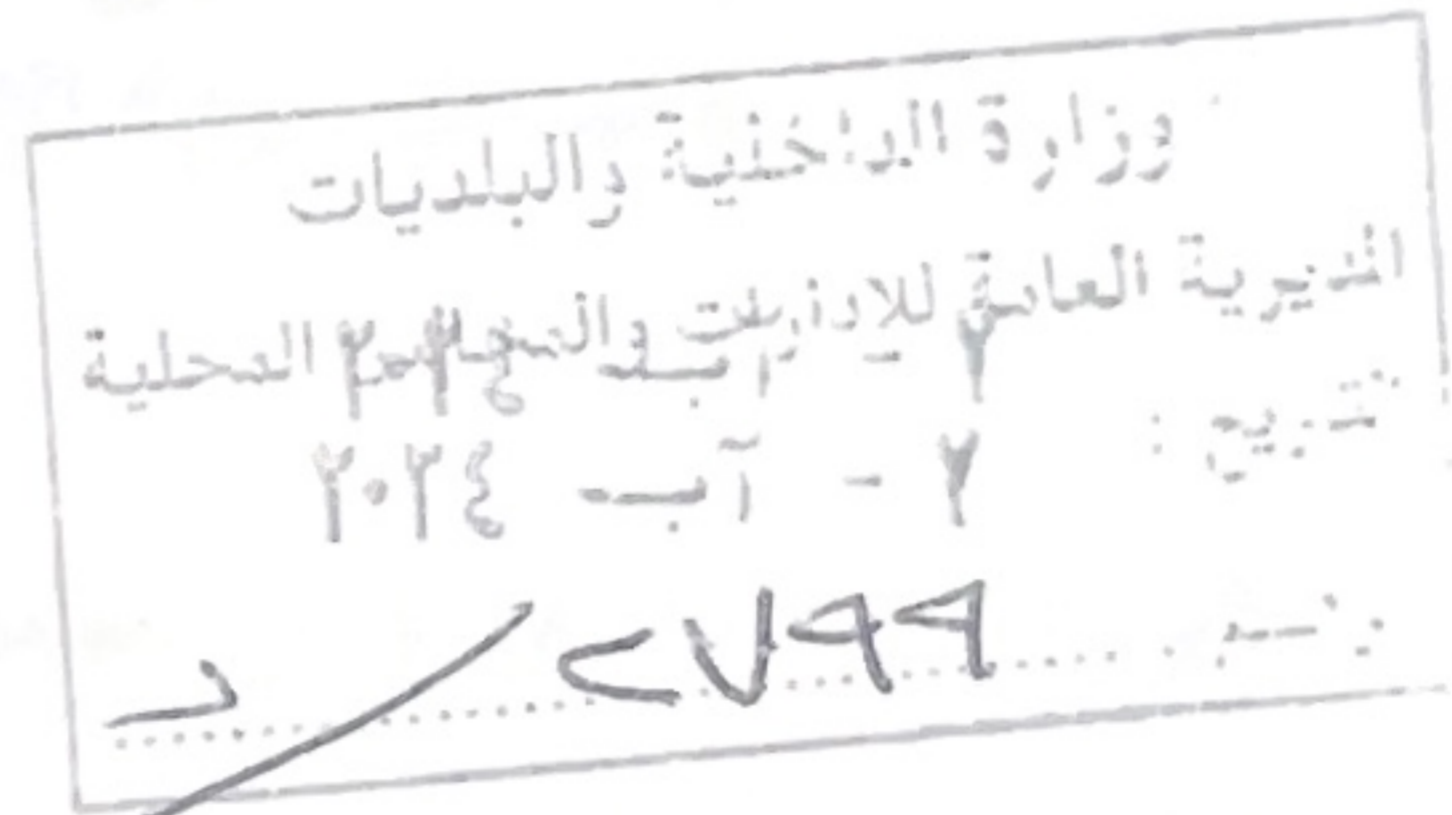 وزارة الداخلية والبلديات
المديرية العامة للإدارات والمجالس المحلية
٢ - آب ٢٠٢٤
تاريخ :
٢ - آب ٢٠٢٤
رقم ٢٧٩٩ / د